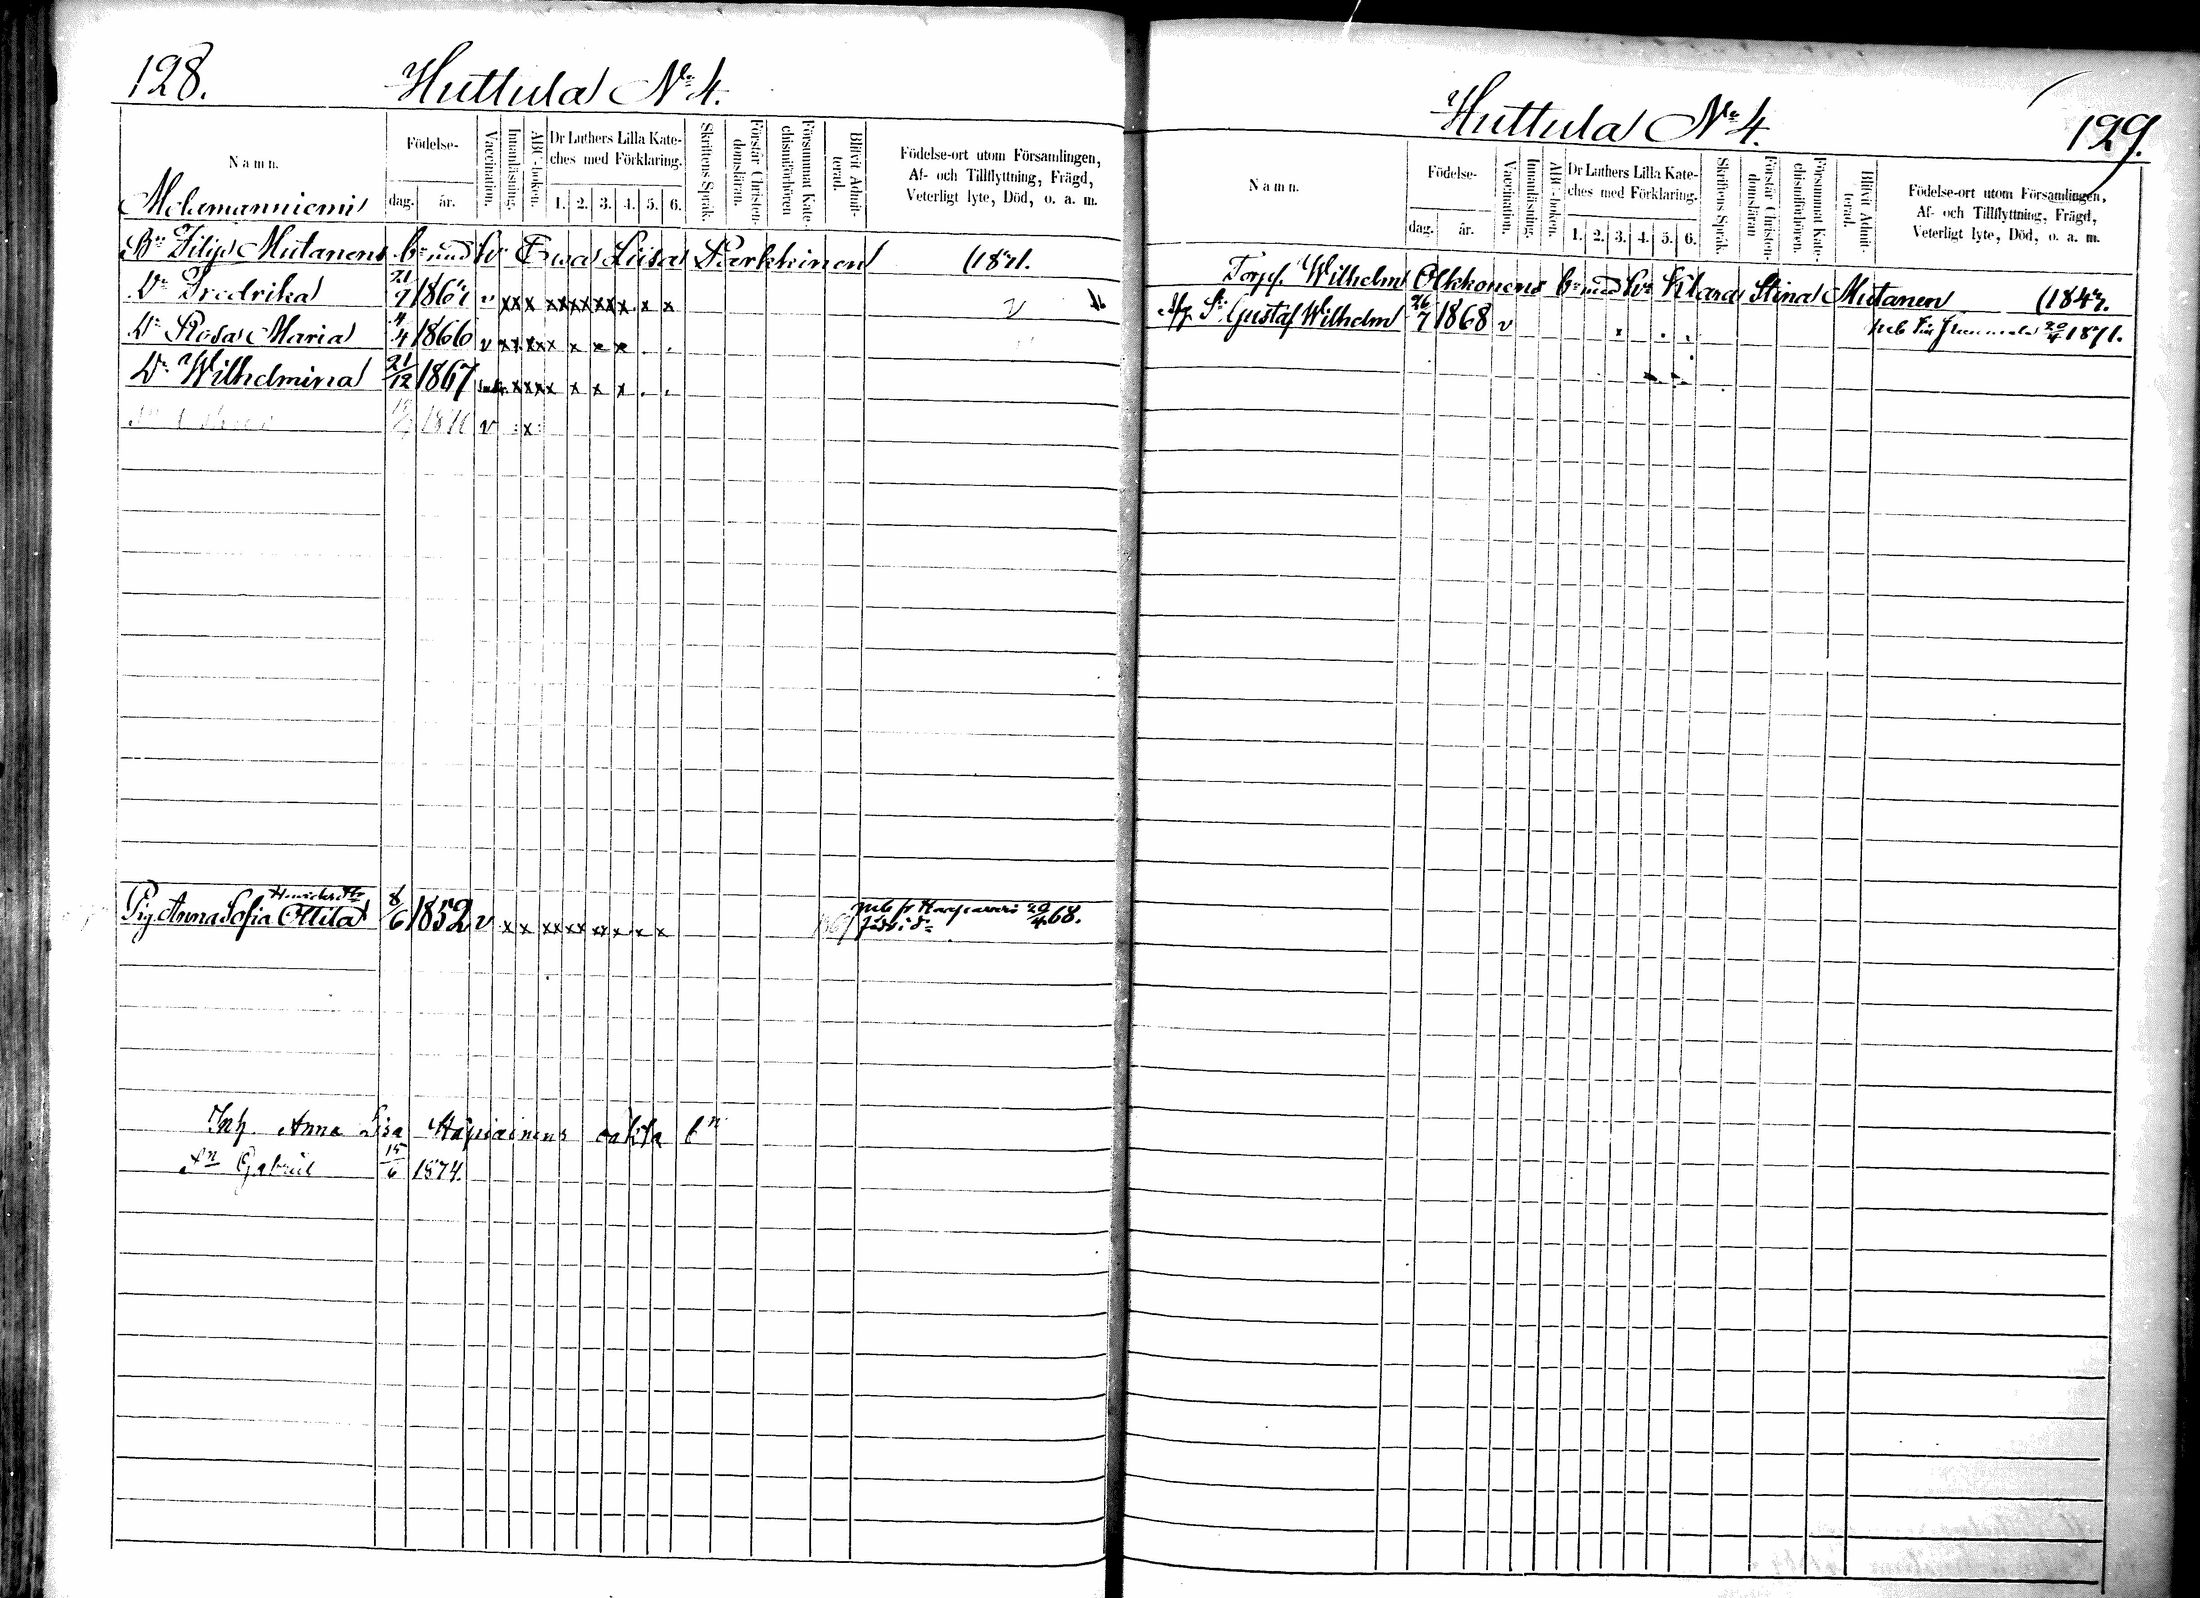 128. Huttula N:o 4.
Namn.
Födelse-
dag. år.
Vaccination.
Innanläsning.
ABC-boken.
Dr Luthers Lilla Kate-
ches med Förklaring.
1. 2. 3. 4. 5. 6.
Skriftens Språk.
Förstår Christen-
domsläran.
Försummat Kate-
chismiförhören
Blifvit Admit-
terad.
Födelse-ort utom Församlingen,
Af- och Tillflyttning, Frägd,
Veterligt lyte, Död, o. a. m.
Filip Mutanens b:n med h:u Ewa Liisa Parkkinen (1871.
D:r Fredrika 21/7 186 v x x x x x x x x x x x x
D:r Rosa Maria 4/4 1866 v x x x x x x x x . .
D:r Wilhelmina 21/12 1867 x x x x x x x x . .
v x
Pig. Anna Sofia Ottila 8/6 1852 v x x x x x x x x x x
20/4 68.
Inh. Anna Lisa oäkta b:n
S:n Gabriel 15/6 1874.
Huttula N:o 4. 129.
Namn.
Födelse-
dag. år.
Vaccination.
Innanläsning.
ABC-boken.
Dr Luthers Lilla Kate-
ches med Förklaring.
1. 2. 3. 4. 5. 6.
Skriftens Språk.
Förstår Christen-
domsläran
Försummat Kate-
chismiförhören.
Blifvit Admit-
terad.
Födelse-ort utom Församlingen,
Af- och Tillflyttning, Frägd,
Veterligt lyte, Död, o. a. m.
Torp. Wilhelm Olkkonens b:n med h:u Klara Stina Mutanen
S:n Gustaf Wilhelm 26/7 1868 v 20/4 1871.